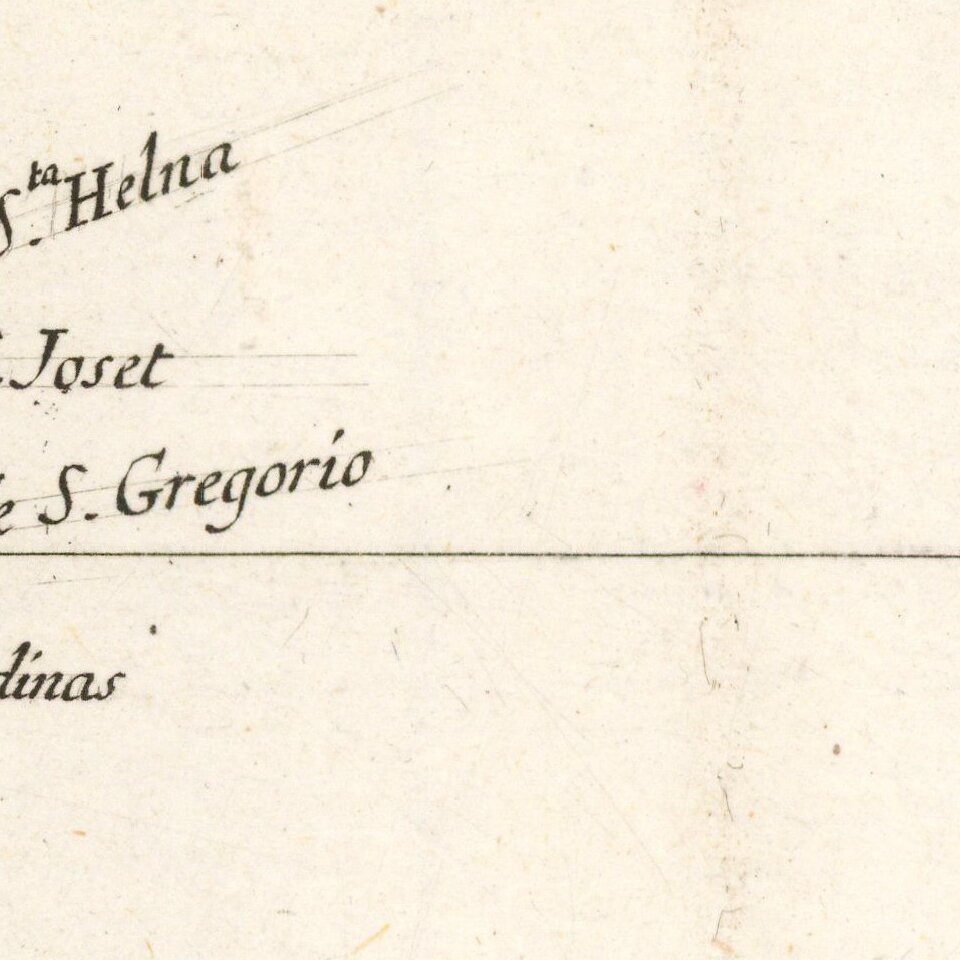 S.ta Helna
Joset
S. Gregorio